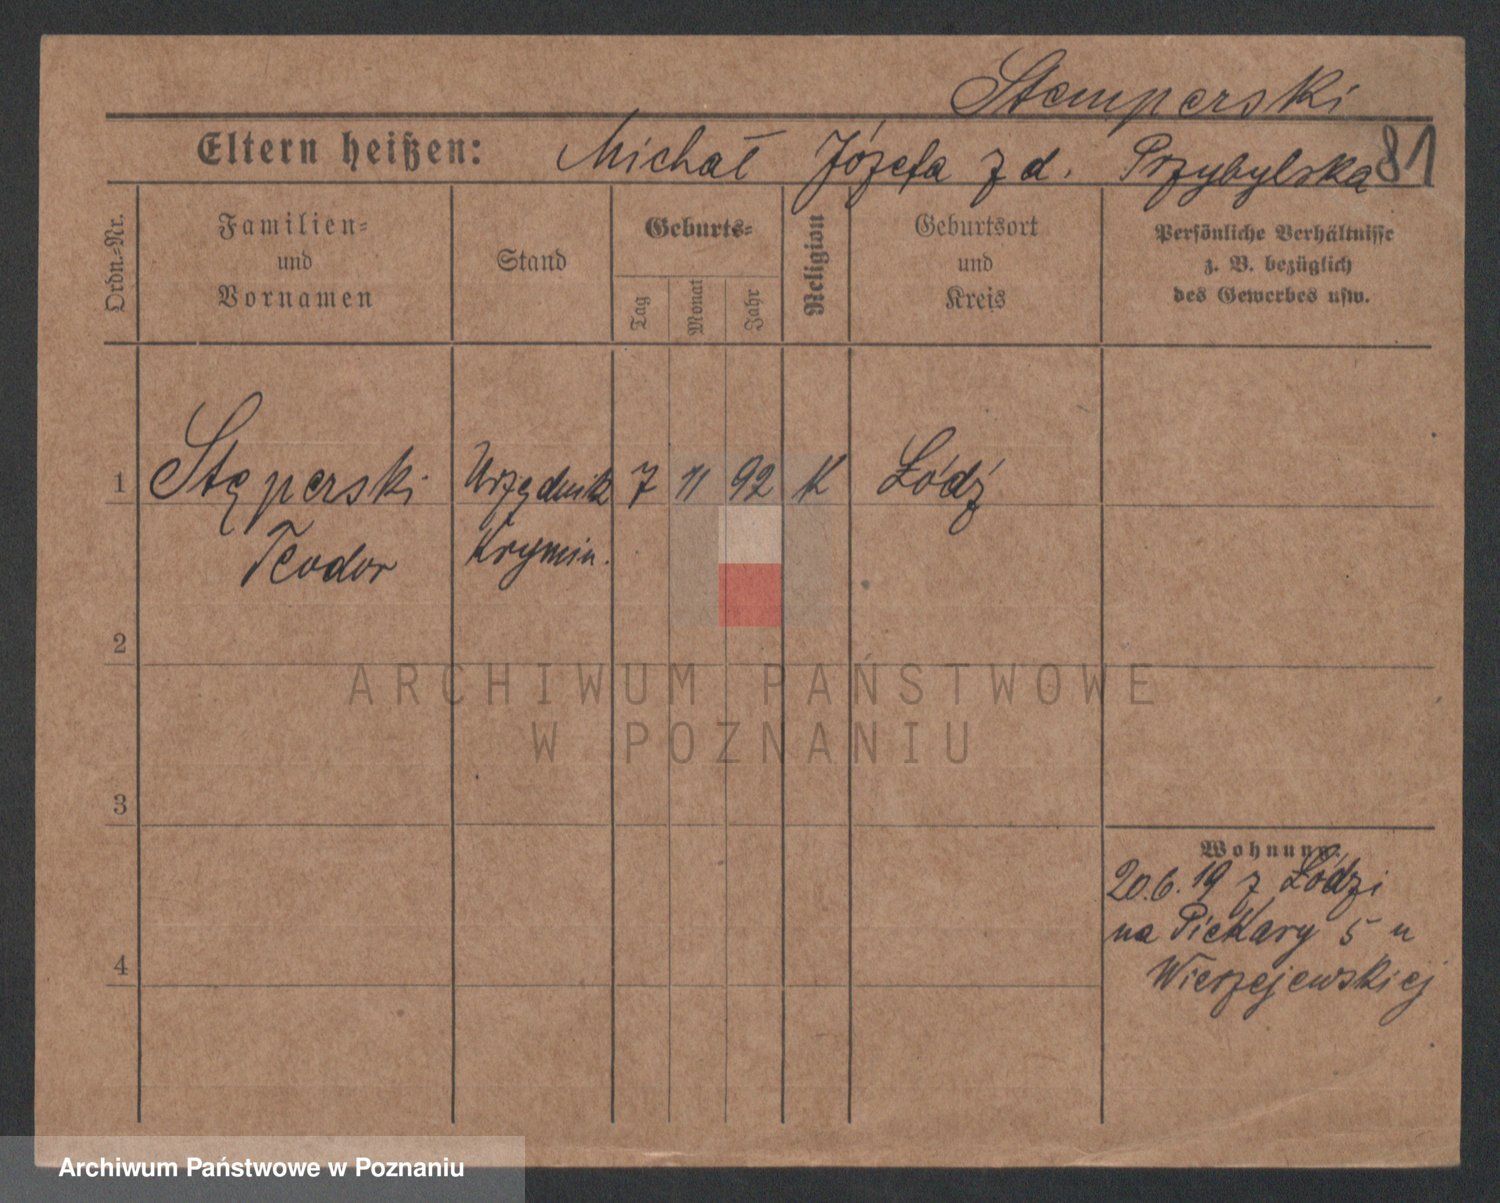 Stemperski
Eltern heißen: Michał Józefa z d. Przybylska 81
Ordn.=Nr.
Familien=
und
Vornamen
Stand
Geburts=
Tag
Monat
Jahr
Religion
Geburtsort
und
Kreis
Persönliche Verhältnisse
z. B. bezüglich
des Gewerbes usw.
1 Stęperski Urzędnik 7 11 92 K Łódź
Teodor Krymin.
2
3
4
Wohnung.
20.6.19 z Łódzi
na Piekary 5 u
Wierzejewskiej
ARCHIWUM PAŃSTWOWE
W POZNANIU
Archiwum Państwowe w Poznaniu